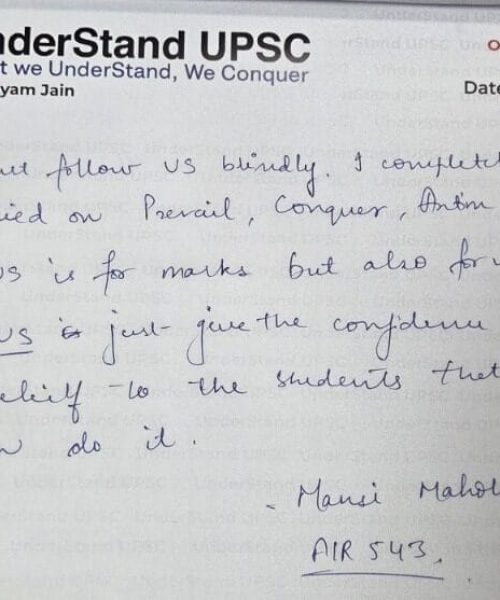 nderStand UPSC
t we UnderStand, We Conquer
yam Jain
Date
ut follow US blindly. I complet
ied on Prevail, Conquer, Antm
US is for marks but also for
US is just give the confidence
elief to the students that
do it.
- Mansi Mahol
AIR 543.